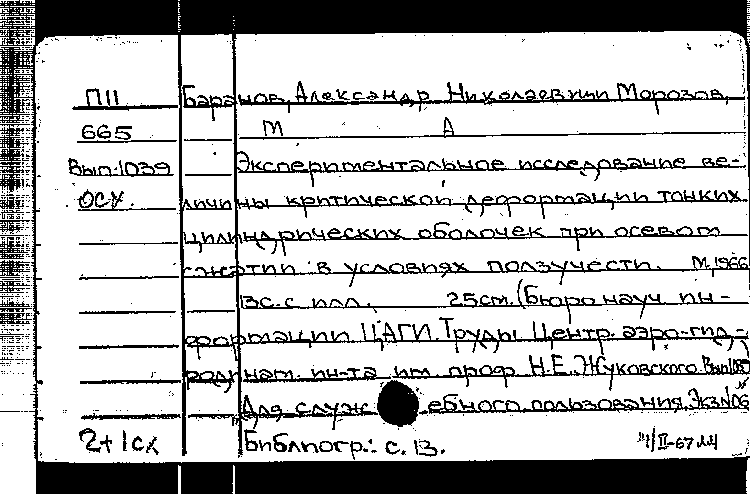 П11 Баранов, Александр Николаевич и Морозов,
665 М А
Вып.1039 Экспериментальное исследование ве-
ОСХ. личины критической деформации тонких
цилиндрических оболочек при осевом
сжатии в условиях ползучести. М, 1966
13с. с илл. 25см. (Бюро науч. ин-
формации ЦАГИ. Труды Центр. аэро-гид-
родинам. ин-та им. проф. Н.Е. Жуковского Вып.
Для служебного пользования. Экз№
2+1сх Библиогр.: с. 13.